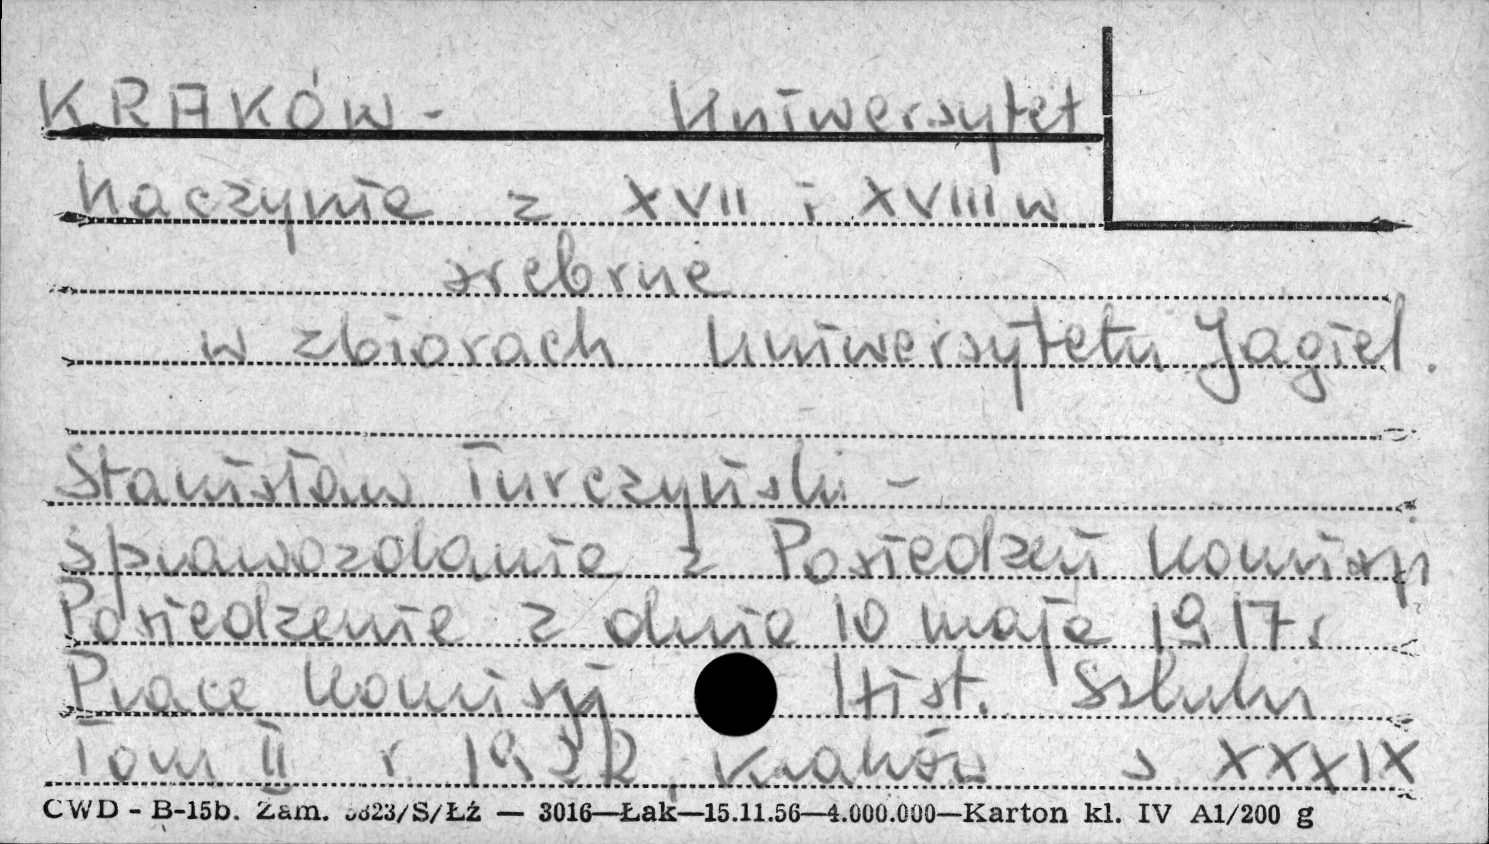 KRAKÓW - Uniwersytet
Naczynie z XVII i XVIII w
srebrne
w zbiorach Uniwersytetu Jagiel.
Stanisław Turczyński -
Sprawozdanie z Posiedzeń Komisji
Posiedzenie z dnia 10 maja 1917 r
Prace Komisji Hist. Sztuki
Tom II r. 1922, Kraków s XXXIX
CWD - B-15b. Zam. 5823/S/ŁŹ — 3016—Łak—15.11.56—4.000.000—Karton kl. IV A1/200 g